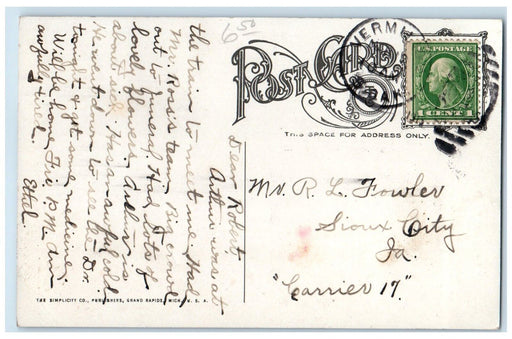 6⁵⁰
POST CARD
HERM
U.S. POSTAGE
1 CENT 1
THIS SPACE FOR ADDRESS ONLY.
Dear Robert,
Arthur was at
the train to meet me. Had
Mr. Rose's team. Big crowd
out to funeral. Had lots of
lovely flowers. Arthur is
about sick. Has an awful cold.
He went down to see the Dr.
tonight & got some medicine.
Will be home Fri. P.M. Am
awfully tired.
Ethel.
Mr. R. L. Fowler
Sioux City
Ia.
"Carrier 17".
THE SIMPLICITY CO., PUBLISHERS, GRAND RAPIDS, MICH., U. S. A.